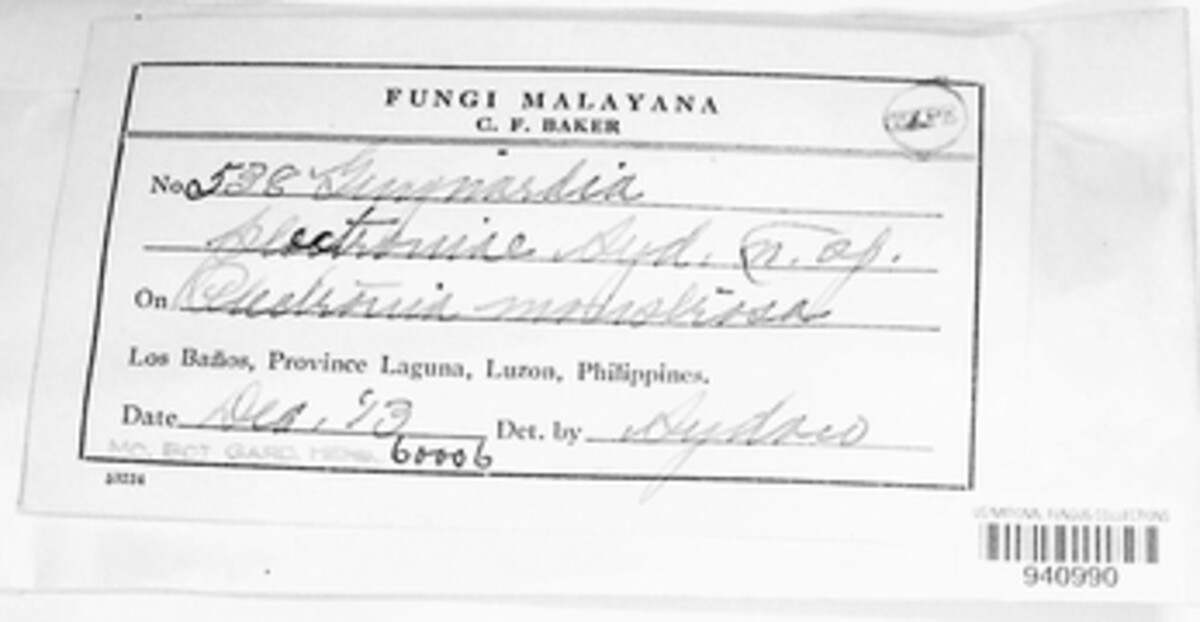 FUNGI MALAYANA
C. F. BAKER
TYPE
No. 538 Guignardia
plectroniae Syd. n. sp.
On Plectronia monstrosa
Los Baños, Province Laguna, Luzon, Philippines.
Date Dec. '13 Det. by Sydow
MO. BOT. GARD. HERB. 60006
US NATIONAL FUNGUS COLLECTIONS
940990